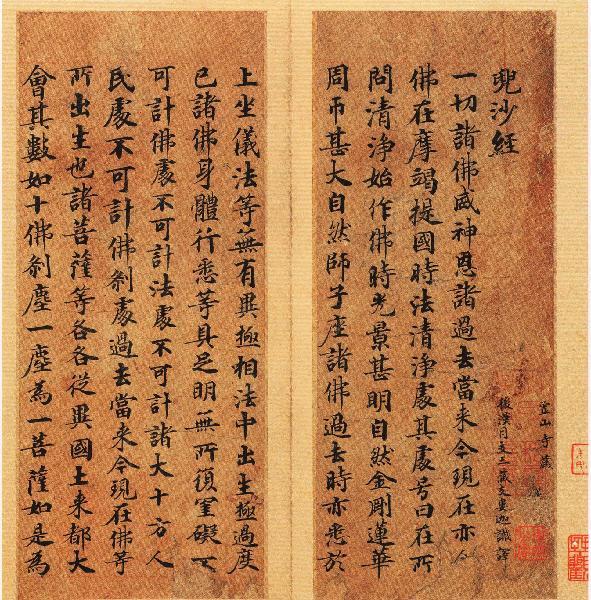 後漢月支三藏支婁迦讖譯
兜沙經
一切諸佛威神恩諸過去當来今現在亦尒
佛在摩竭提國時法清淨處其處号曰在所
問清淨始作佛時光景甚明自然金剛蓮華
周帀甚大自然師子座諸佛過去時亦悉於
上坐儀法等無有異極相法中出生極過度
已諸佛身體行悉等具足明無所復罣礙不
可計佛處不可計法處不可計諸大十方人
民處不可計佛剎處過去當来今現在佛等
所出生也諸菩薩等各各從異國土来都大
會其數如十佛剎塵一塵為一菩薩如是為